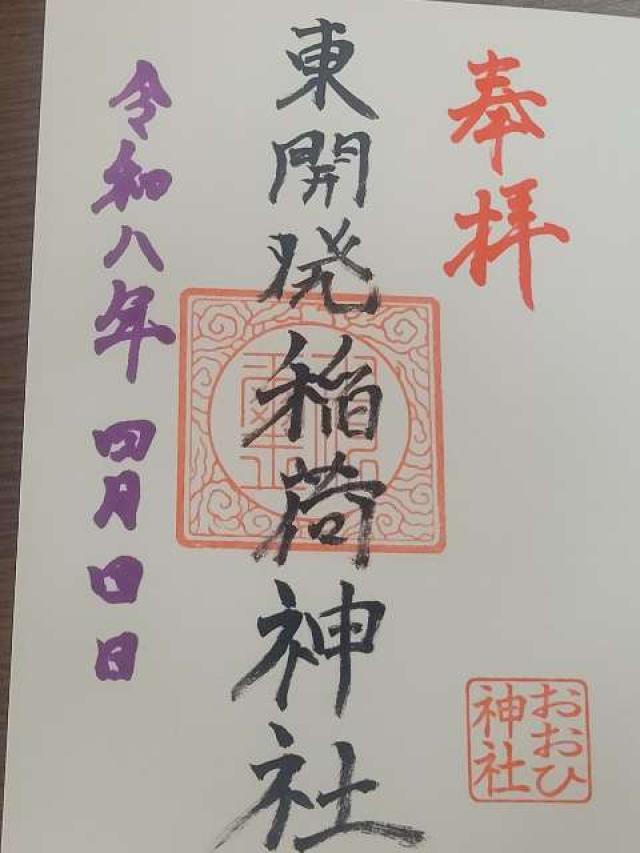 奉拝
東開発稲荷神社
令和八年 四月四日
おおひ
神社